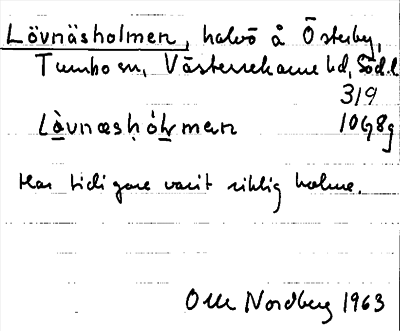 Lövnäsholmen, halvö å Österby,
Tumbo sn, Västerrekarne hd, Södl.
319
Lòvnæshól̥mæn 10G8g
Har tidigare varit riktig holme.
Olle Nordberg 1963